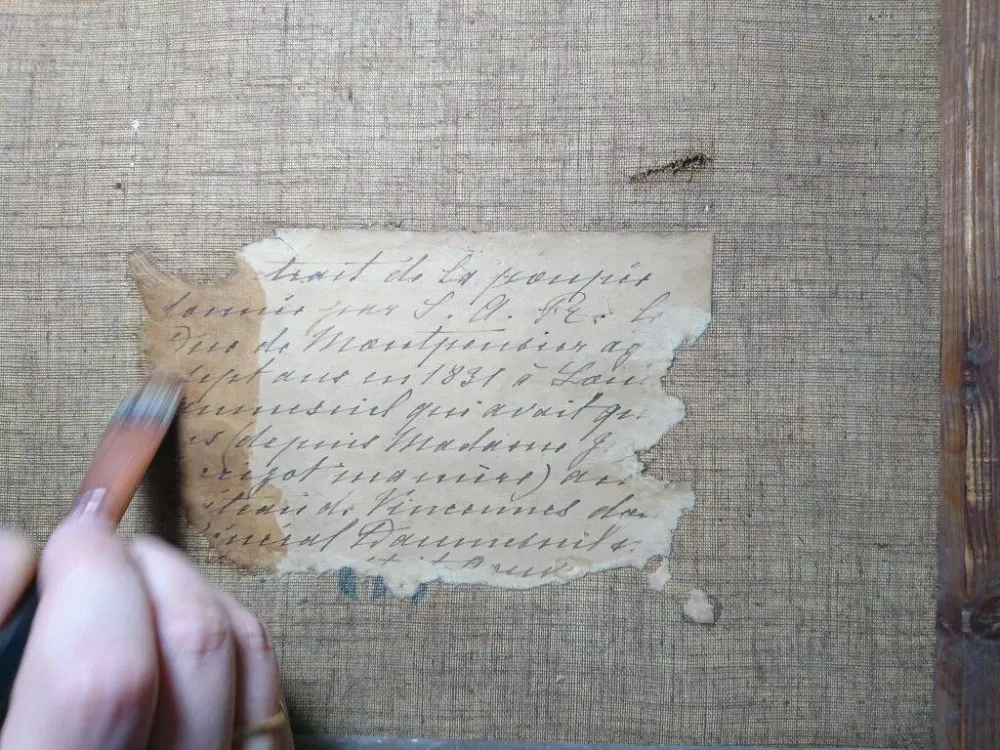 trait de la poupée
donnée par S. A. R. Le
Duc de Montpensier ag
sept ans en 1831 à Lou
aumesnil qui avait
(depuis Madame
rigot ma mère) au
teau de Vincennes do
néral Daumesnil